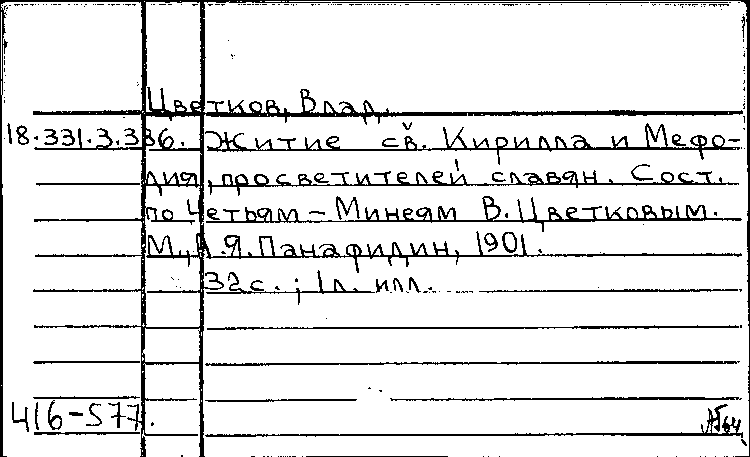 Цветков, Влад.
18.331.3.336. Житие св. Кирилла и Мефо-
дия, просветителей славян. Сост.
по Четьям-Минеям В. Цветковым.
М., А.Я. Панафидин, 1901.
32 с. ; 1 л. илл.
416-577.